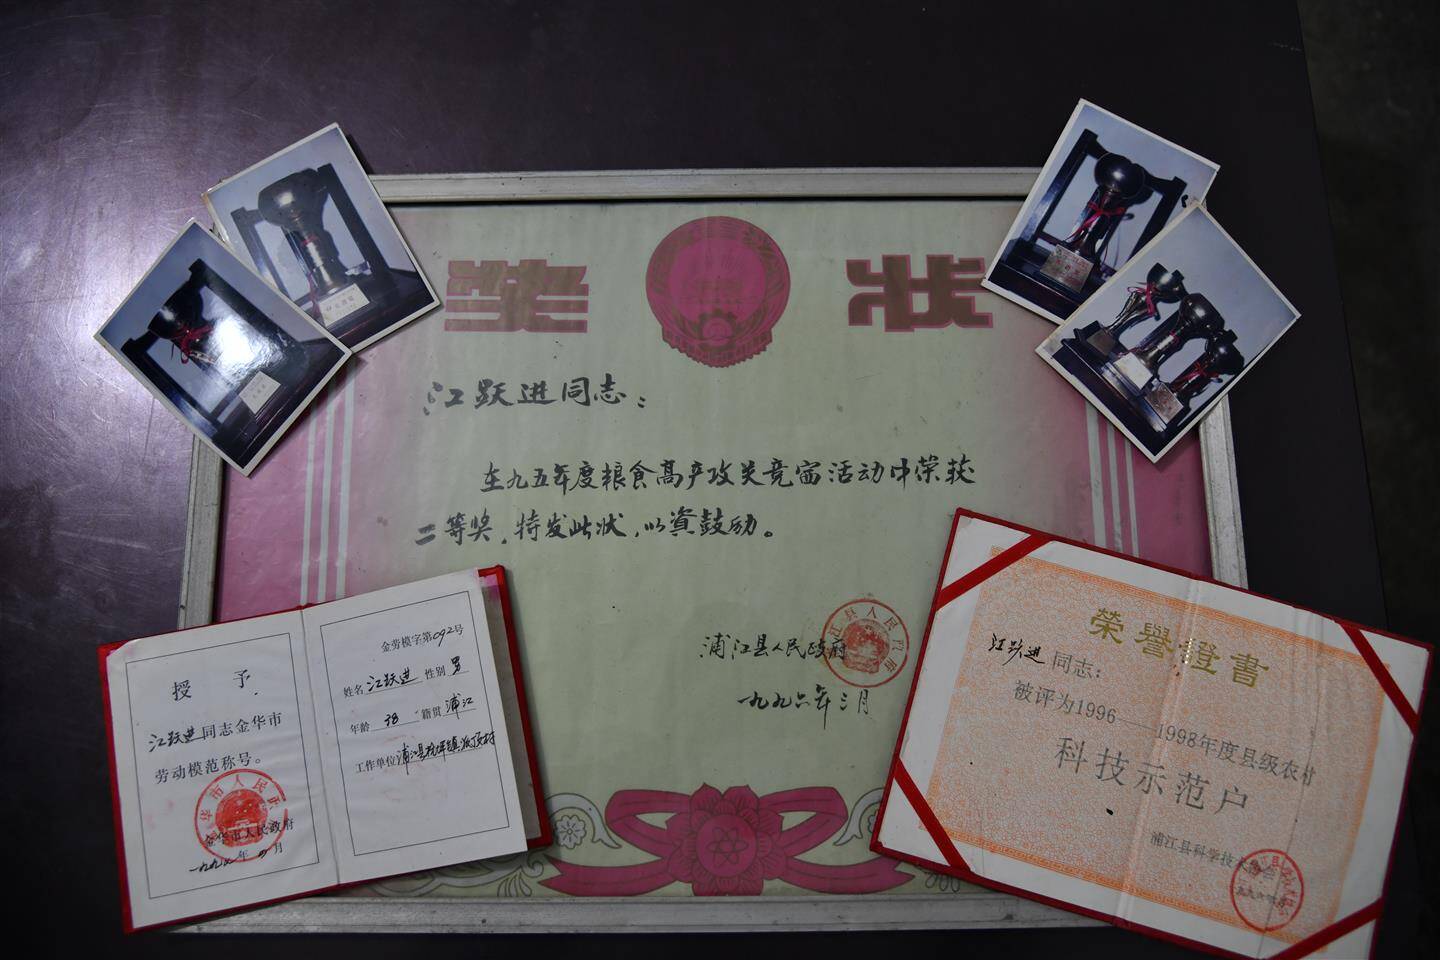 奖 状
江跃进同志：
在九五年度粮食高产攻关竞赛活动中荣获
二等奖，特发此状，以资鼓励。
浦江县人民政府
一九九六年三月
授 予
江跃进同志金华市
劳动模范称号。
金华市人民政府
金劳模字第092号
姓名 江跃进 性别 男
年龄 38 籍贯 浦江
工作单位浦江县
荣誉證書
江跃进同志：
被评为1996——1998年度县级农村
科技示范户
浦江县科学技术